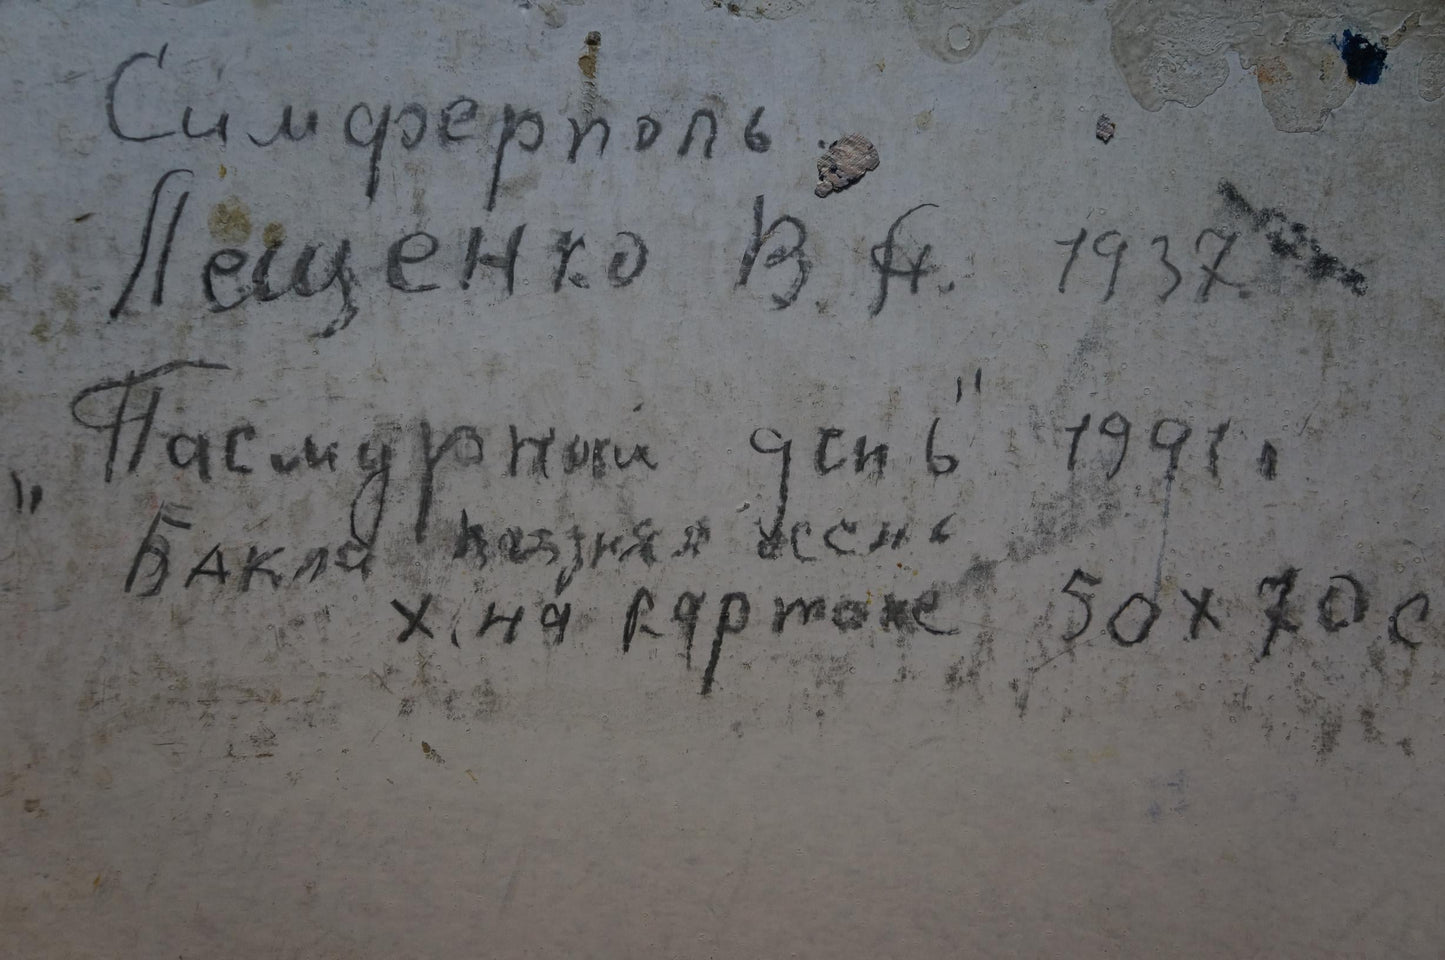 Симферполь.
Лещенко В. А. 1937
"Пасмурный день" 1991г.
Бакла поздняя осень
х. на картоне 50х70 с